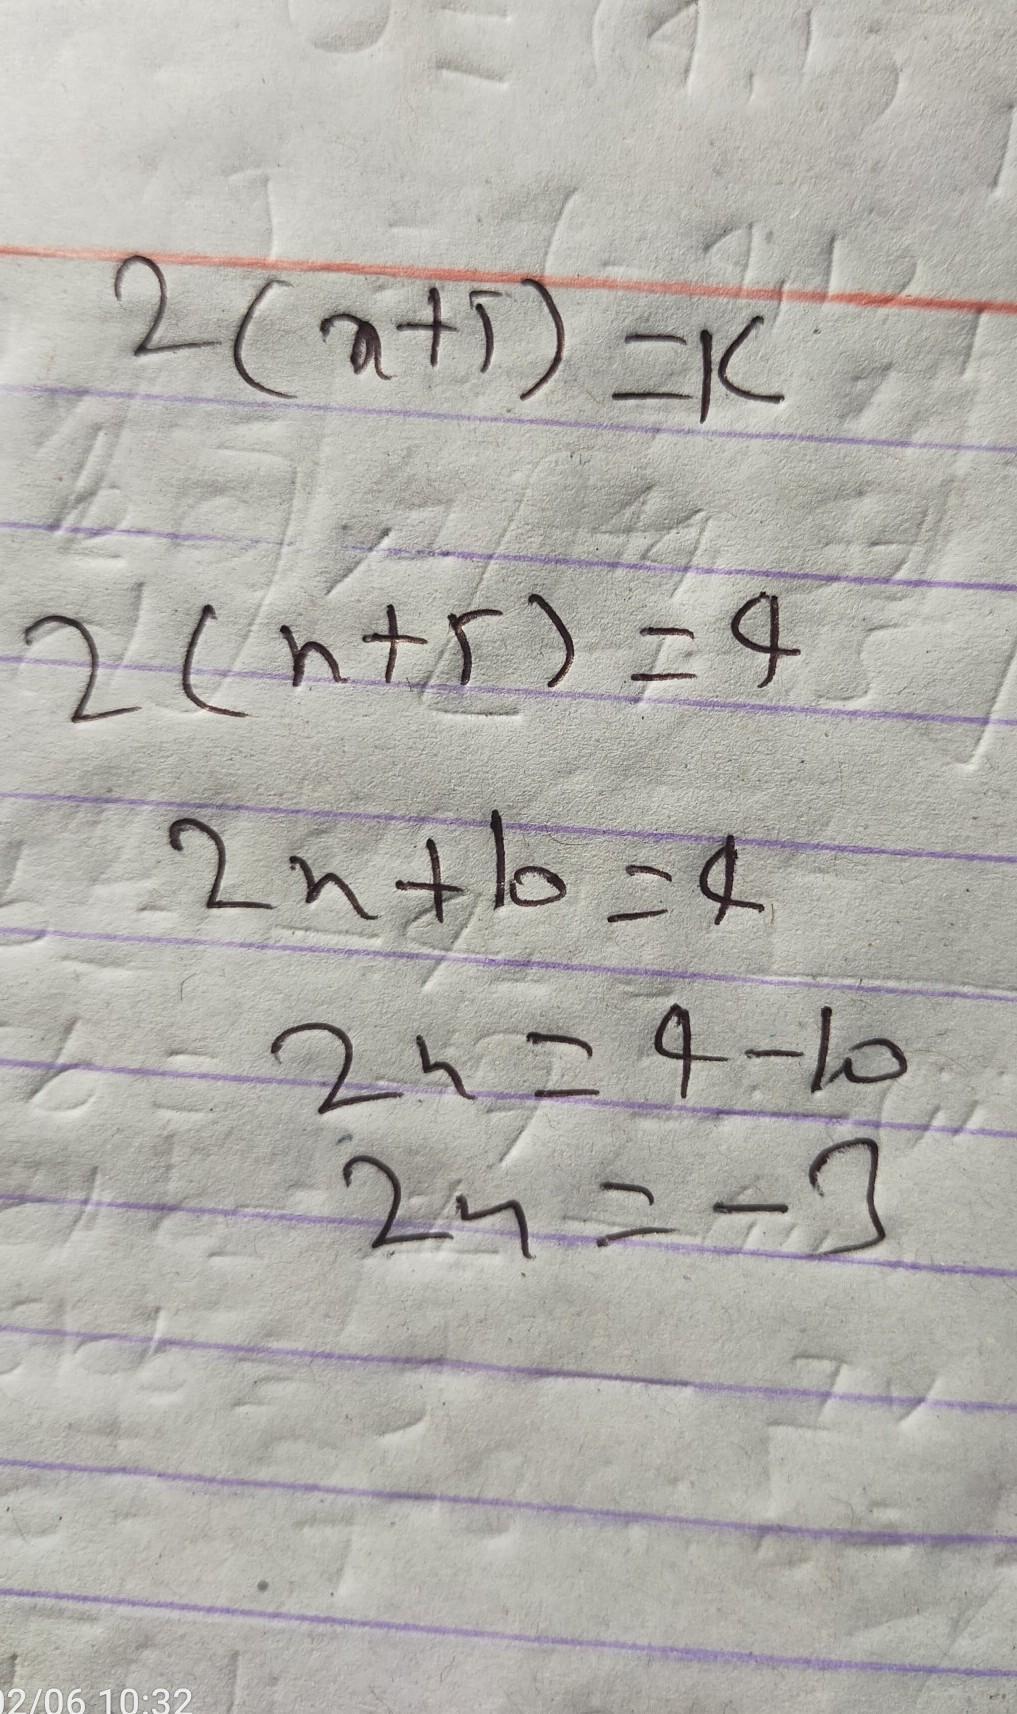 2(n+5)=K
2(n+5)=4
2n+10=4
2n=4-10
2n=-3
02/06 10:32